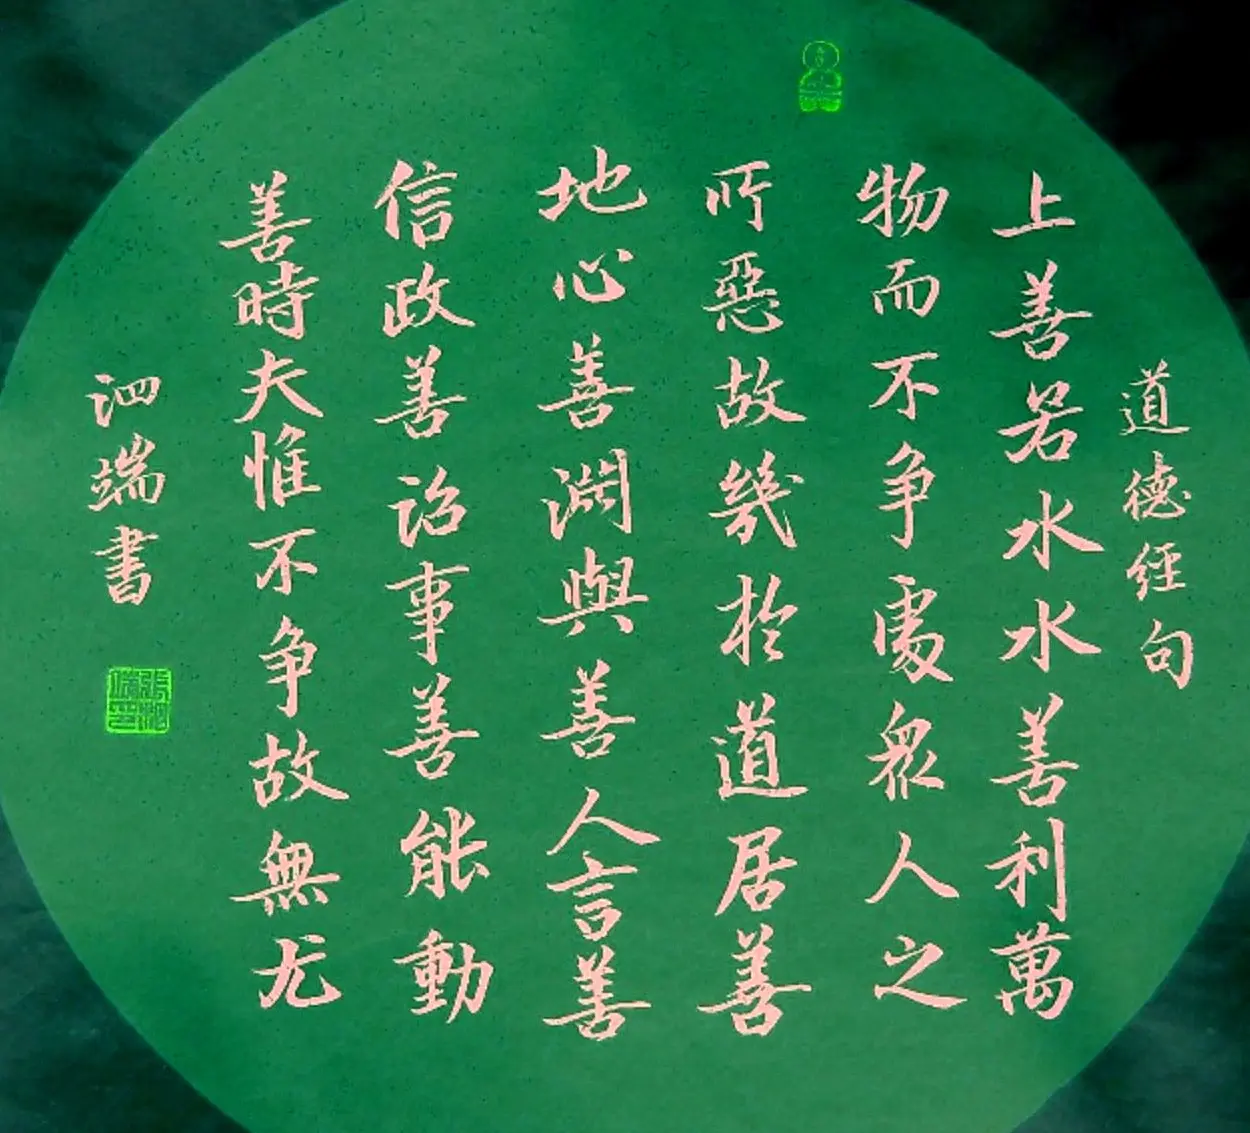 道德經句
上善若水水善利萬
物而不争處衆人之
所惡故幾於道居善
地心善淵與善人言善
信政善治事善能動
善時夫惟不争故無尤
泗端書